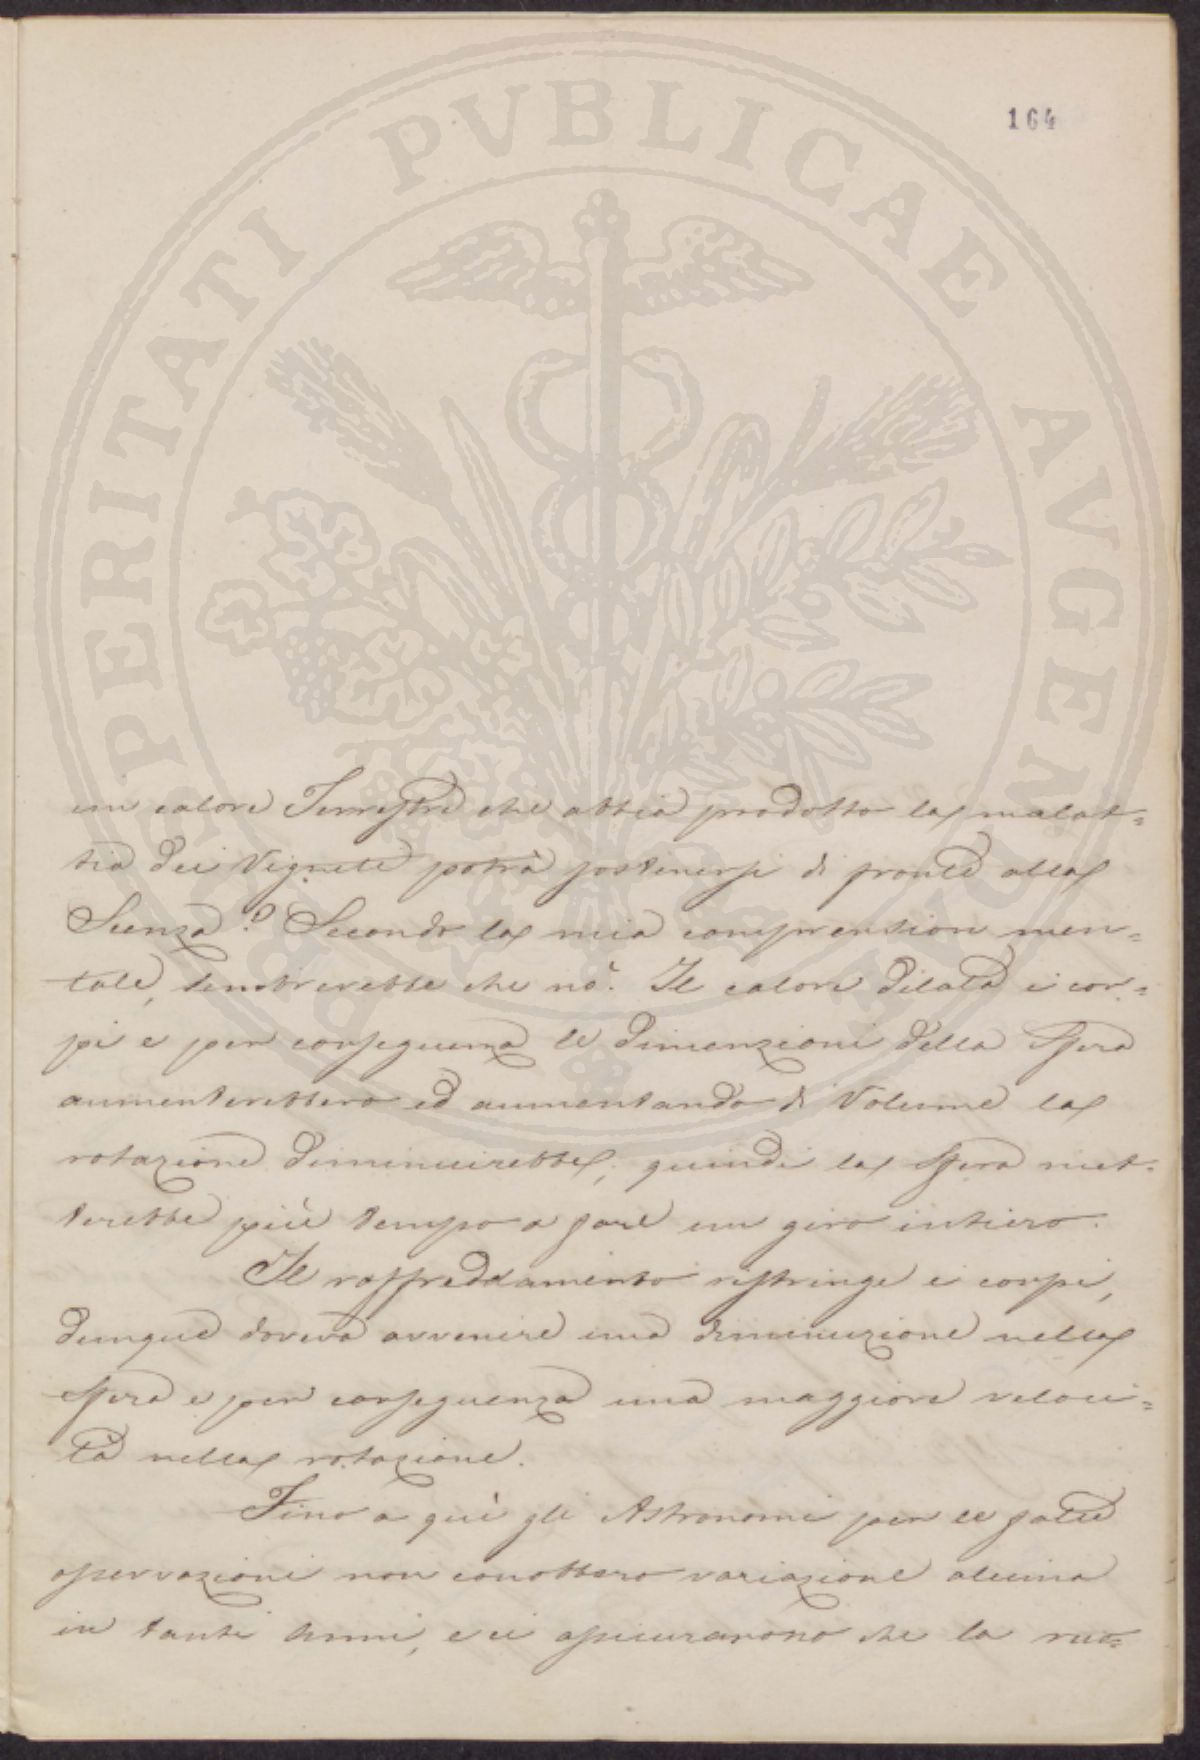 164
un calore Terrestre che abbia prodotto la malat=
tia dei Vigneti potrà sostenersi di fronte alla
Scienza? Secondo la mia comprension men=
tale, sembrerebbe che nò. Il calore dilata i cor=
pi e per conseguenza le dimenzioni della Sfera
aumenterebbero ed aumentando di Volume la
rotazione diminuirebbe, quindi la Sfera met=
terebbe più tempo a fare un giro intiero.
Il raffreddamento ristringe i corpi,
dunque doveva avvenire una diminuzione nella
Sfera e per conseguenza una maggiore veloci=
tà nella rotazione.
Fino a quì gli Astronomi per le fatte
osservazioni non conobbero variazione alcuna
in tanti anni, e ci assicurarono che la ruo=
PROSPERITATI PVBLICAE AVGENDAE